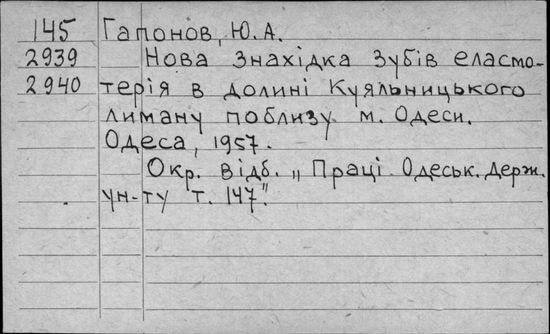 145 Гапонов, Ю.А.
2939 Нова знахідка зубів еласмо-
2940 терія в долині Куяльницького
лиману поблизу м. Одеси.
Одеса, 1957.
Окр. відб. „Праці Одеськ. держ.
ун-ту т. 147".